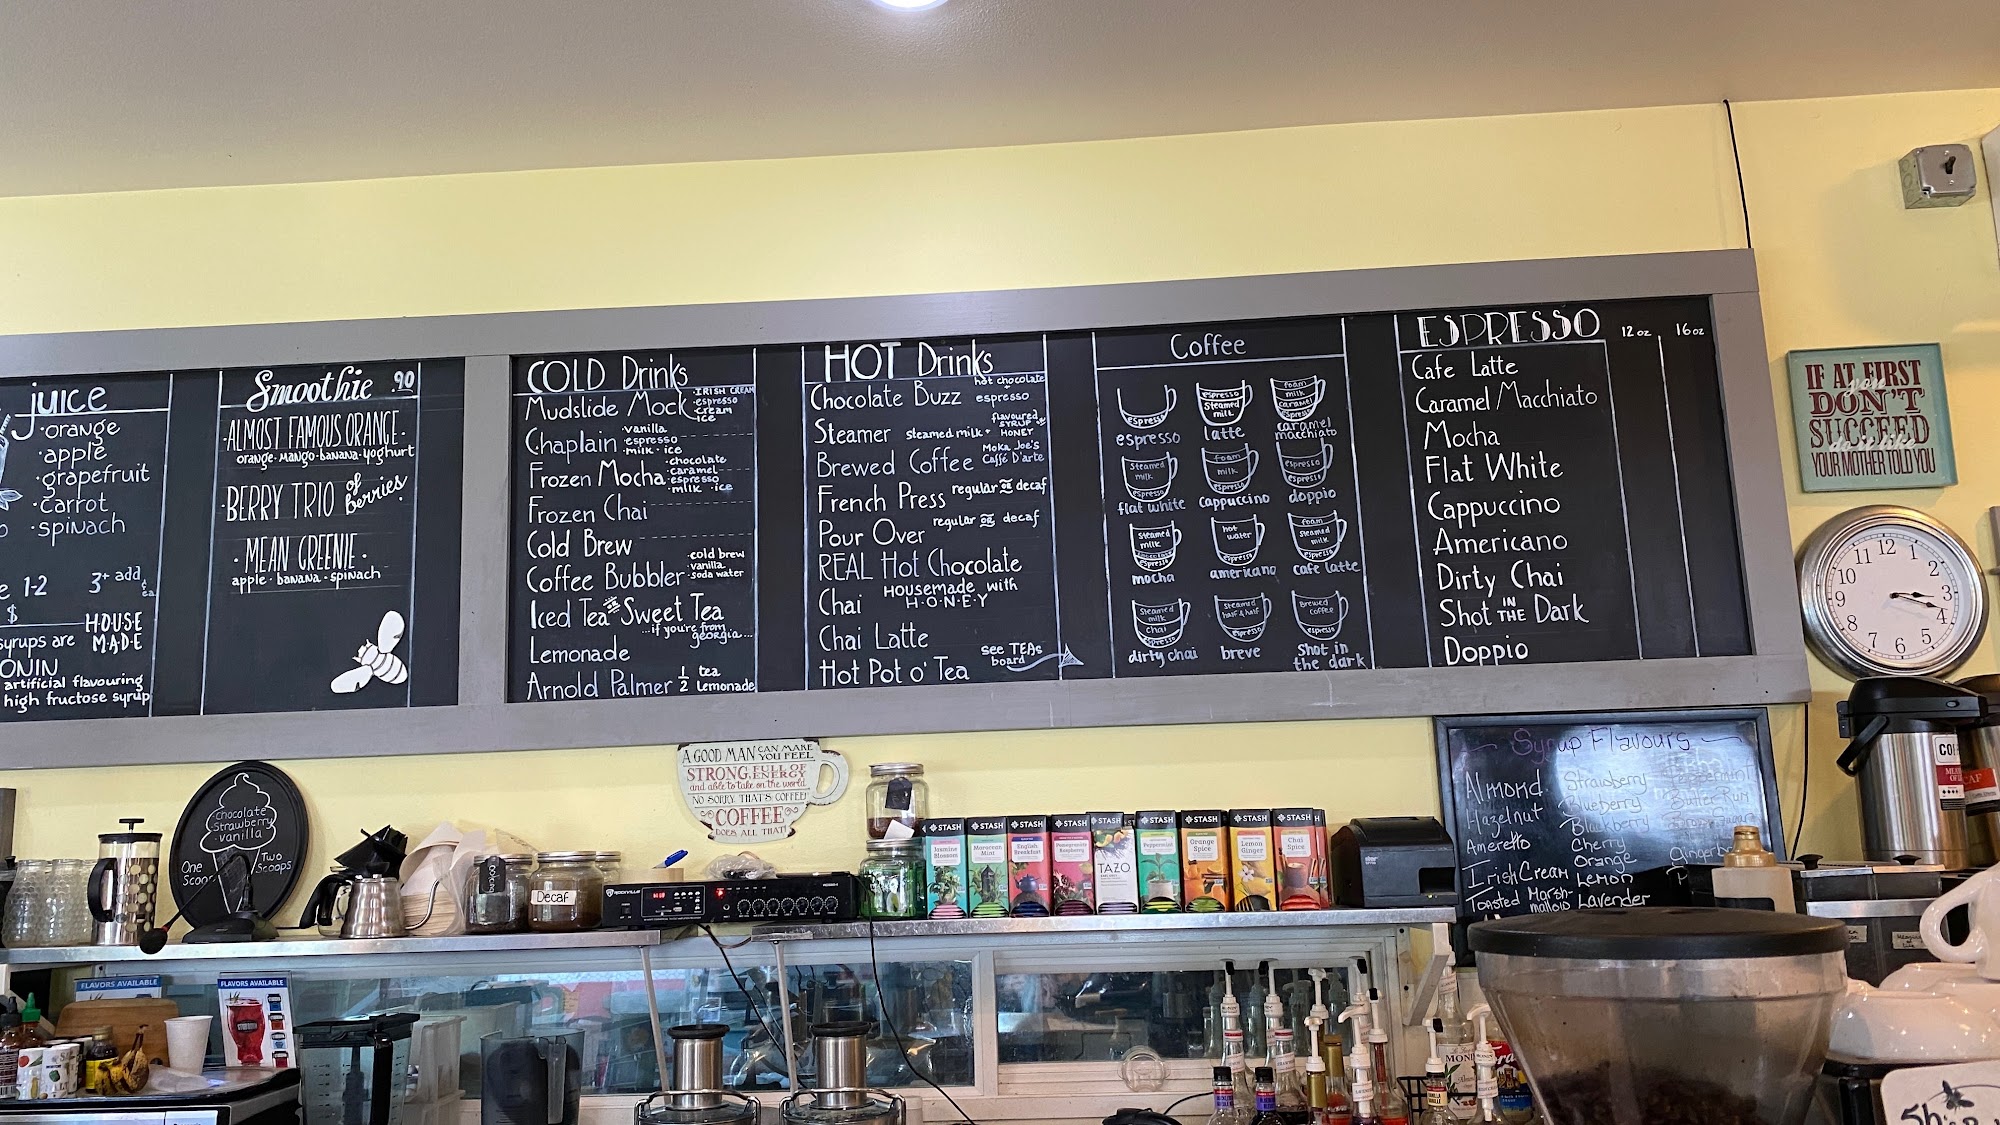 juice
·orange
·apple
·grapefruit
·carrot
·spinach
1-2 3+ add
$
syrups are HOUSE MADE
ONIN
artificial flavouring
high fructose syrup
Smoothie .90
·ALMOST FAMOUS ORANGE·
orange·mango·banana·yoghurt
·BERRY TRIO of berries·
·MEAN GREENIE·
apple·banana·spinach
COLD Drinks
Mudslide Mock ·IRISH CREAM ·espresso ·cream ·ice
Chaplain ·vanilla ·espresso ·milk·ice
Frozen Mocha ·chocolate ·caramel ·espresso ·milk ·ice
Frozen Chai
Cold Brew
Coffee Bubbler ·cold brew ·vanilla ·soda water
Iced Tea Sweet Tea
...if you're from georgia...
Lemonade
Arnold Palmer 1/2 tea lemonade
HOT Drinks
Chocolate Buzz hot chocolate + espresso
Steamer steamed milk + flavoured syrup or HONEY
Brewed Coffee Moka Joe's Caffé D'arte
French Press regular or decaf
Pour Over regular or decaf
REAL Hot Chocolate
Chai Housemade with H·O·N·E·Y
Chai Latte
Hot Pot o' Tea see TEAs board
Coffee
espresso
espresso
espresso
steamed milk
latte
foam
milk
caramel
espresso
caramel macchiato
steamed milk
espresso
flat white
foam
milk
espresso
cappuccino
espresso
espresso
doppio
steamed milk
chocolate
espresso
mocha
hot water
espresso
americano
foam
steamed milk
espresso
cafe latte
steamed milk
chai
espresso
dirty chai
steamed half & half
espresso
breve
Brewed coffee
espresso
shot in the dark
ESPRESSO 12 oz 16 oz
Cafe Latte
Caramel Macchiato
Mocha
Flat White
Cappuccino
Americano
Dirty Chai
Shot IN THE Dark
Doppio
IF AT FIRST
you
DON'T
SUCCEED
do it like
YOUR MOTHER TOLD YOU
12
1
2
3
4
5
6
7
8
9
10
11
chocolate
strawberry
·vanilla
One Scoop
Two Scoops
A GOOD MAN CAN MAKE YOU FEEL
STRONG, FULL OF ENERGY
and able to take on the world.
NO SORRY THAT'S COFFEE!
COFFEE
DOES ALL THAT!
Syrup Flavours
Almond Strawberry
Hazelnut Blueberry Butter Rum
Amaretto Blackberry
Cherry
Irish Cream Orange
Lemon
Toasted Marshmallow Lavender
Decaf
ROCKVILLE
STASH
Jasmine Blossom
STASH
Moroccan Mint
STASH
English Breakfast
STASH
Pomegranate Raspberry
STASH
TAZO
STASH
Peppermint
STASH
Orange Spice
STASH
Lemon Ginger
STASH
Chai Spice
FLAVORS AVAILABLE
FLAVORS AVAILABLE